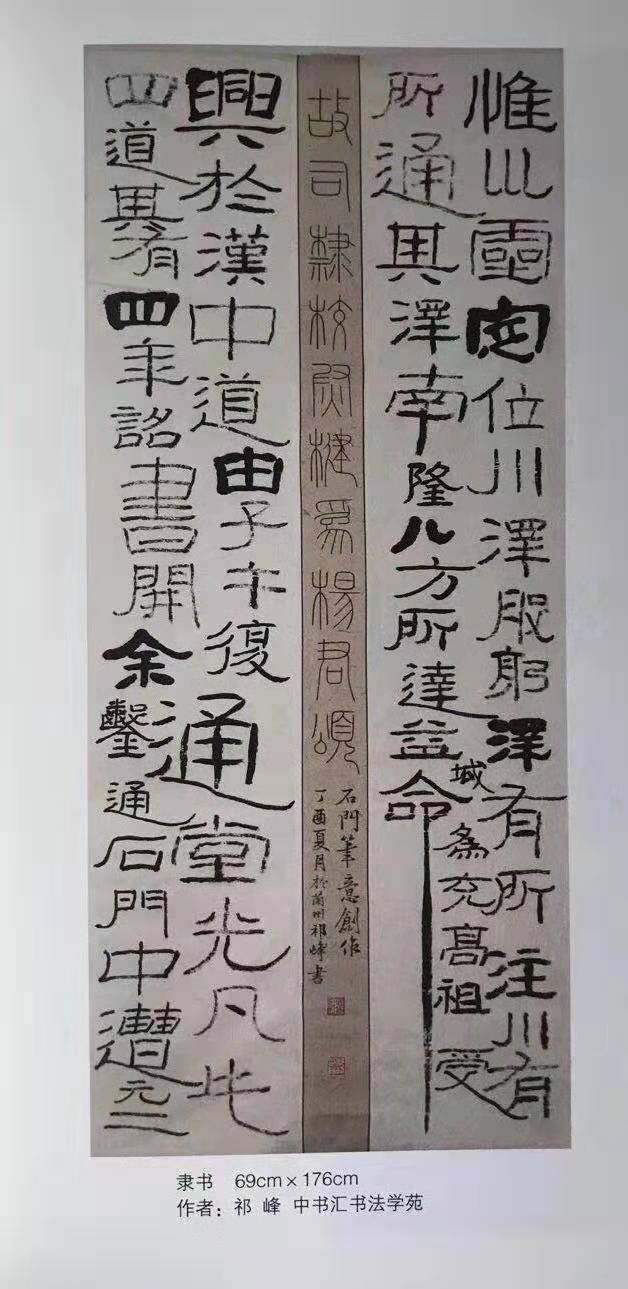 惟巛靈定位川澤股躬澤有所注川有
所通其澤南隆八方所達益城為充高祖受命
故司隸校尉楗為楊君頌
石門筆意創作
丁酉夏月於蘭州祁峰書
興於漢中道由子午復通堂光凡此
四道其有四年詔書開余鑿通石門中遭元二
隶书 69cm×176cm
作者：祁 峰 中书汇书法学苑